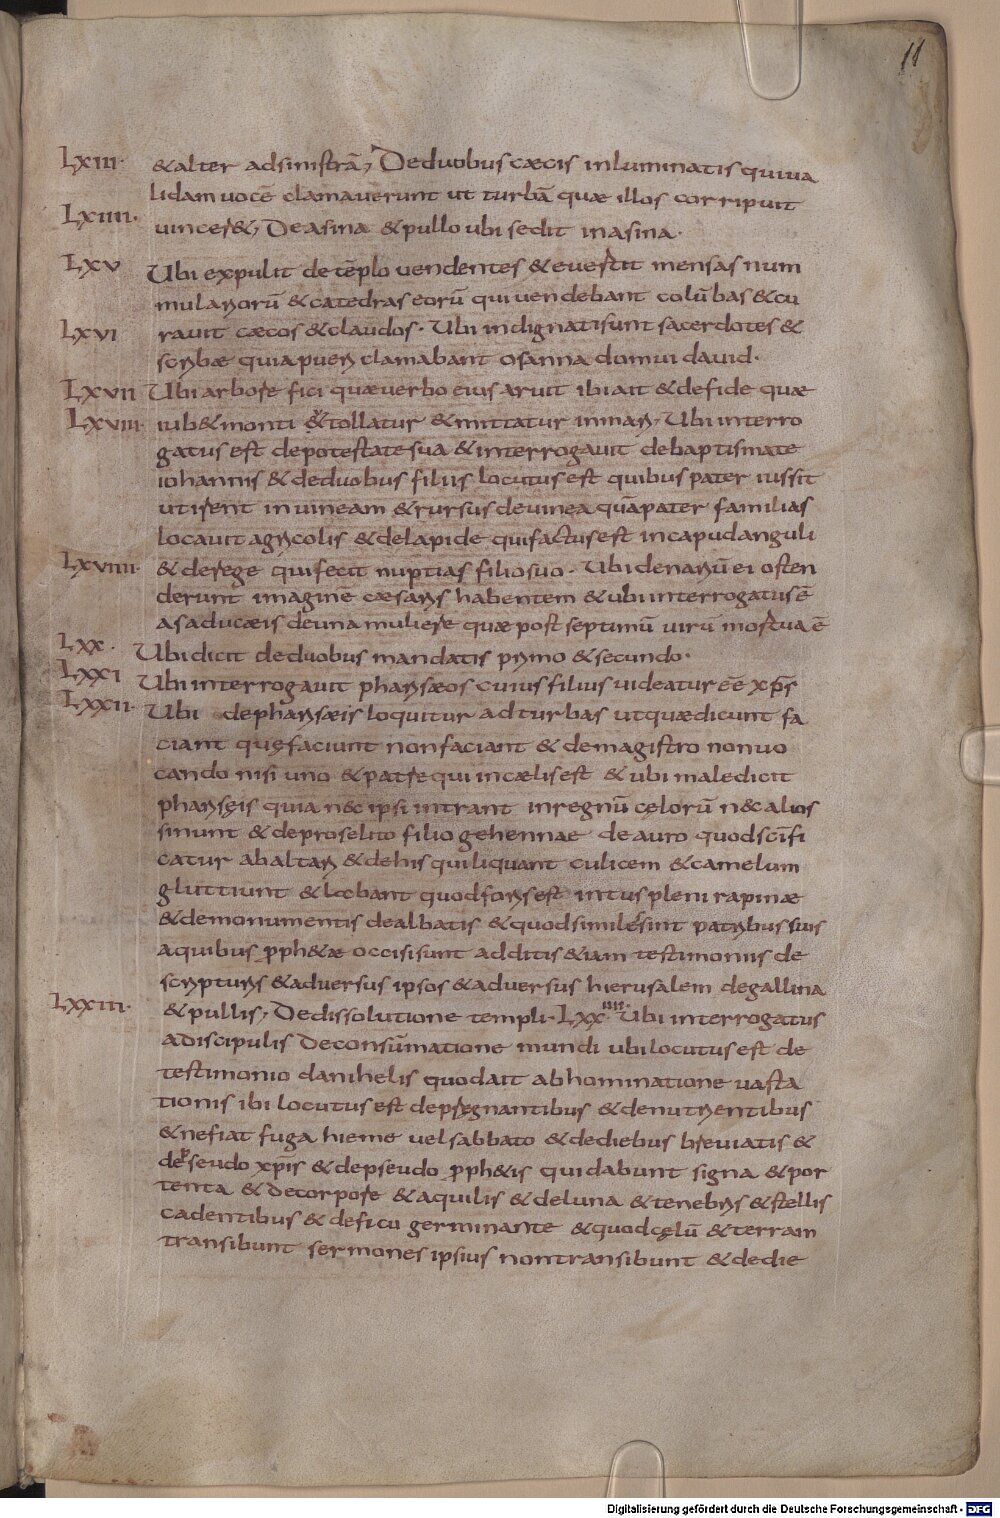 11
LXIII· &alter adsinistrā, Deduobus cæcis inluminatis quiua
lidam uocē clamauerunt ut turbā quæ illos corripuit
LXIIII· uincer&, De asina &pullo ubi sedit inasina·
LXV Ubi expulit detēplo uendentes &euertit mensas num
mulariorū &catedras eorū qui uendebant colūbas &cu
LXVI rauit cæcos &claudos· Ubi indignatisunt sacerdotes &
scribæ quiapueri clamabant osanna domui dauid·
LXVII Ubi arbore fici quæuerbo eius aruit ibi ait &defide quæ
LXVIII· iub& monti &tollatur &mittatur inmari, Ubi interro
gatus est depotestatesua &interrogauit debaptismate
iohannis &deduobus filiis locutus est quibus pater iussit
utirent inuineam &rursus deuinea quāpater familias
locauit agricolis &delapide quifactusest incapudanguli
LXVIIII· &derege quifecit nuptias filiosuo· Ubi denariū ei osten
derunt imaginē cæsaris habentem &ubi interrogatusē
asaducæis deuna muliere quæpost septimū uirū mortua ē
LXX· Ubi dicit deduobus mandatis primo &secundo·
LXXI Ubi interrogauit pharisæos cuius filius uideatur ēē xp̄s
LXXII· Ubi depharisæis loquitur adturbas utquædicunt fa
ciant quęfaciunt nonfaciant &demagistro nonuo
cando nisi uno &patre qui incælis est &ubi maledicit
pharisęis quia n&c ipsi intrant inregnū cęlorū n&c alios
sinunt &deproselito filio gehennae deauro quodsc̄ifi
catur abaltari &dehis quiliquant culicem &camelum
gluttiunt & quodforisest intus pleni rapinæ
&demonumentis dealbatis &quodsimiles sint patribus suis
aquibus pph&æ occisisunt additis &iam testimoniis de
scripturis &aduersus ipsos &aduersus hierusalem degallina
LXXIII· &pullis, Dedissolutione templi· LXXIIII· Ubi interrogatus
adiscipulis deconsūmatione mundi ubi locutus est de
testimonio danihelis quodait abhominatione uasta
tionis ibi locutus est depregnantibus &denutrientibus
&nefiat fuga hieme uel sabbato &dediebus breuiatis &
depseudo xp̄is &depseudo pph&is quidabunt signa &por
tenta &decorpore &aquilis &deluna &tenebris &stellis
cadentibus &deficu germinante &quodcęlū &terram
transibunt sermones ipsius nontransibunt &dedie
Digitalisierung gefördert durch die Deutsche Forschungsgemeinschaft - DFG